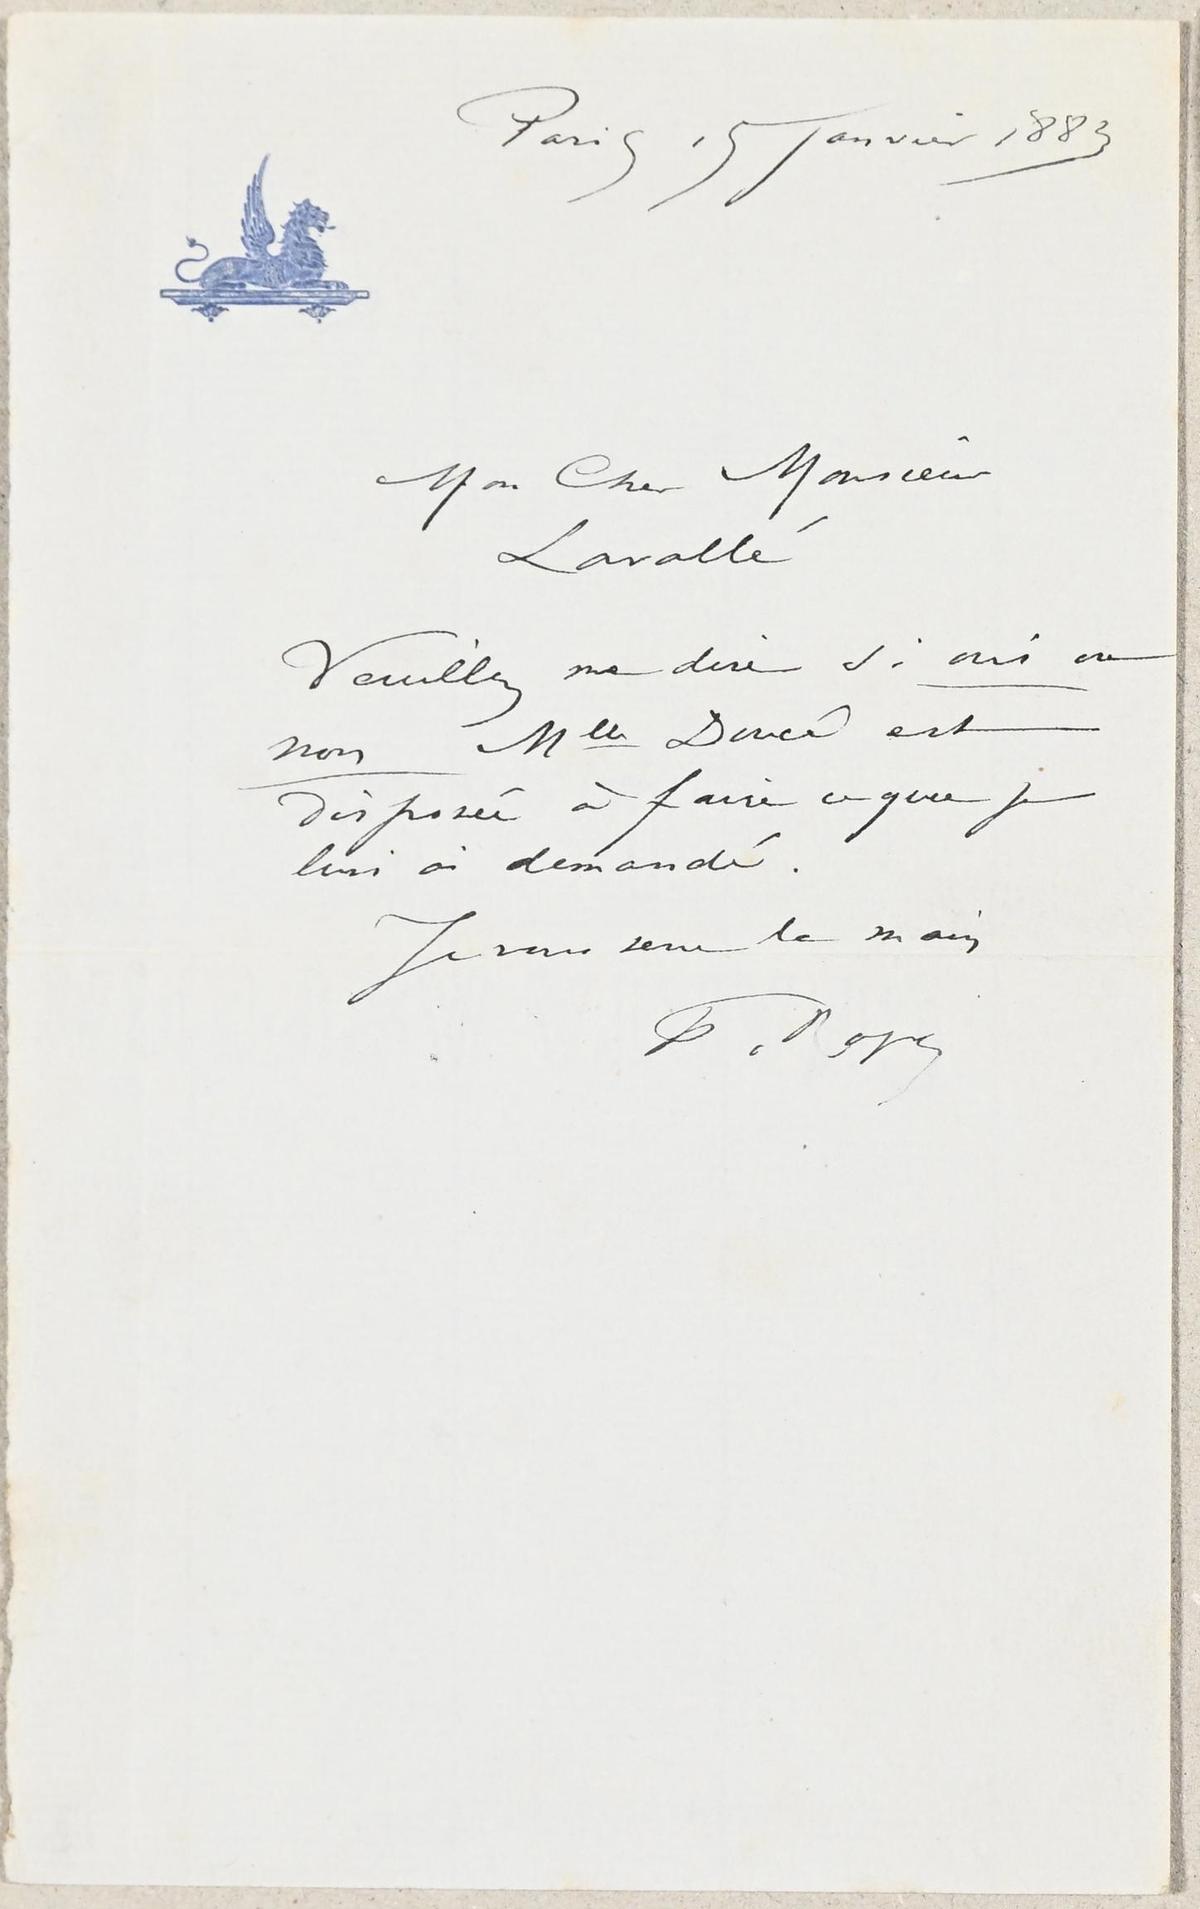 Paris 15 Janvier 1883
Mon Cher Monsieur
Lavallé
Veuillez me dire si oui ou
non Mlle Doucé est
disposée à faire ce que je
lui ai demandé.
Je vous serre la main
F. Rops